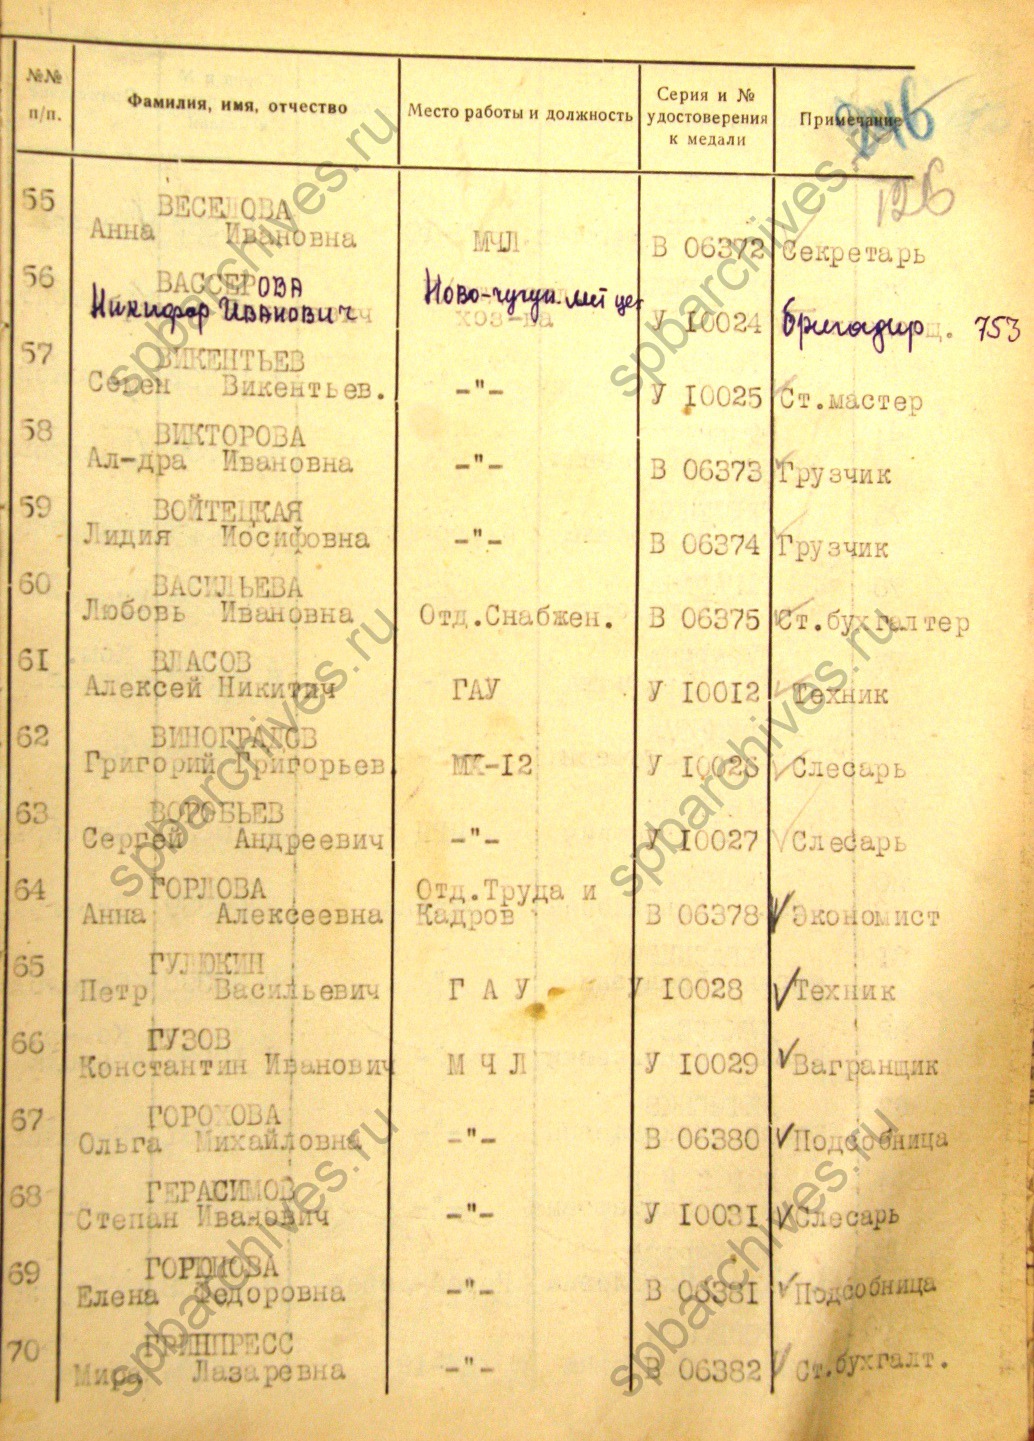 №№ п/п. Фамилия, имя, отчество Место работы и должность Серия и № удостоверения к медали Примечание
246
126
55 ВЕСЕЛОВА
Анна Ивановна МЧЛ В 06372 Секретарь
56 ВАССЕРОВА
Никифор Иванович Ново-чугун. лит цех хоз-ва У 10024 бригадир 753
57 ВИКЕНТЬЕВ
Семен Викентьев. -"- У 10025 Ст.мастер
58 ВИКТОРОВА
Ал-дра Ивановна -"- В 06373 Грузчик
59 ВОЙТЕЦКАЯ
Лидия Иосифовна -"- В 06374 Грузчик
60 ВАСИЛЬЕВА
Любовь Ивановна Отд.Снабжен. В 06375 Ст.бухгалтер
61 ВЛАСОВ
Алексей Никитич ГАУ У 10012 Техник
62 ВИНОГРАДОВ
Григорий Григорьев. МК-12 У 10026 Слесарь
63 ВОРОБЬЕВ
Сергей Андреевич -"- У 10027 Слесарь
64 ГОРЛОВА Отд.Труда и
Анна Алексеевна Кадров В 06378 Экономист
65 ГУЛЮКИН
Петр Васильевич Г А У У 10028 Техник
66 ГУЗОВ
Константин Иванович М Ч Л У 10029 Вагранщик
67 ГОРОХОВА
Ольга Михайловна -"- В 06380 Подсобница
68 ГЕРАСИМОВ
Степан Иванович -"- У 10031 Слесарь
69
Елена Федоровна -"- В 06381 Подсобница
70 ГРИНПРЕСС
Мира Лазаревна -"- В 06382 Ст.бухгалт.
spbarchives.ru
spbarchives.ru
spbarchives.ru
spbarchives.ru
spbarchives.ru
spbarchives.ru